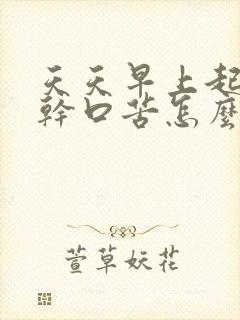 天天早上起
幹口苦怎麼
萱草妖花